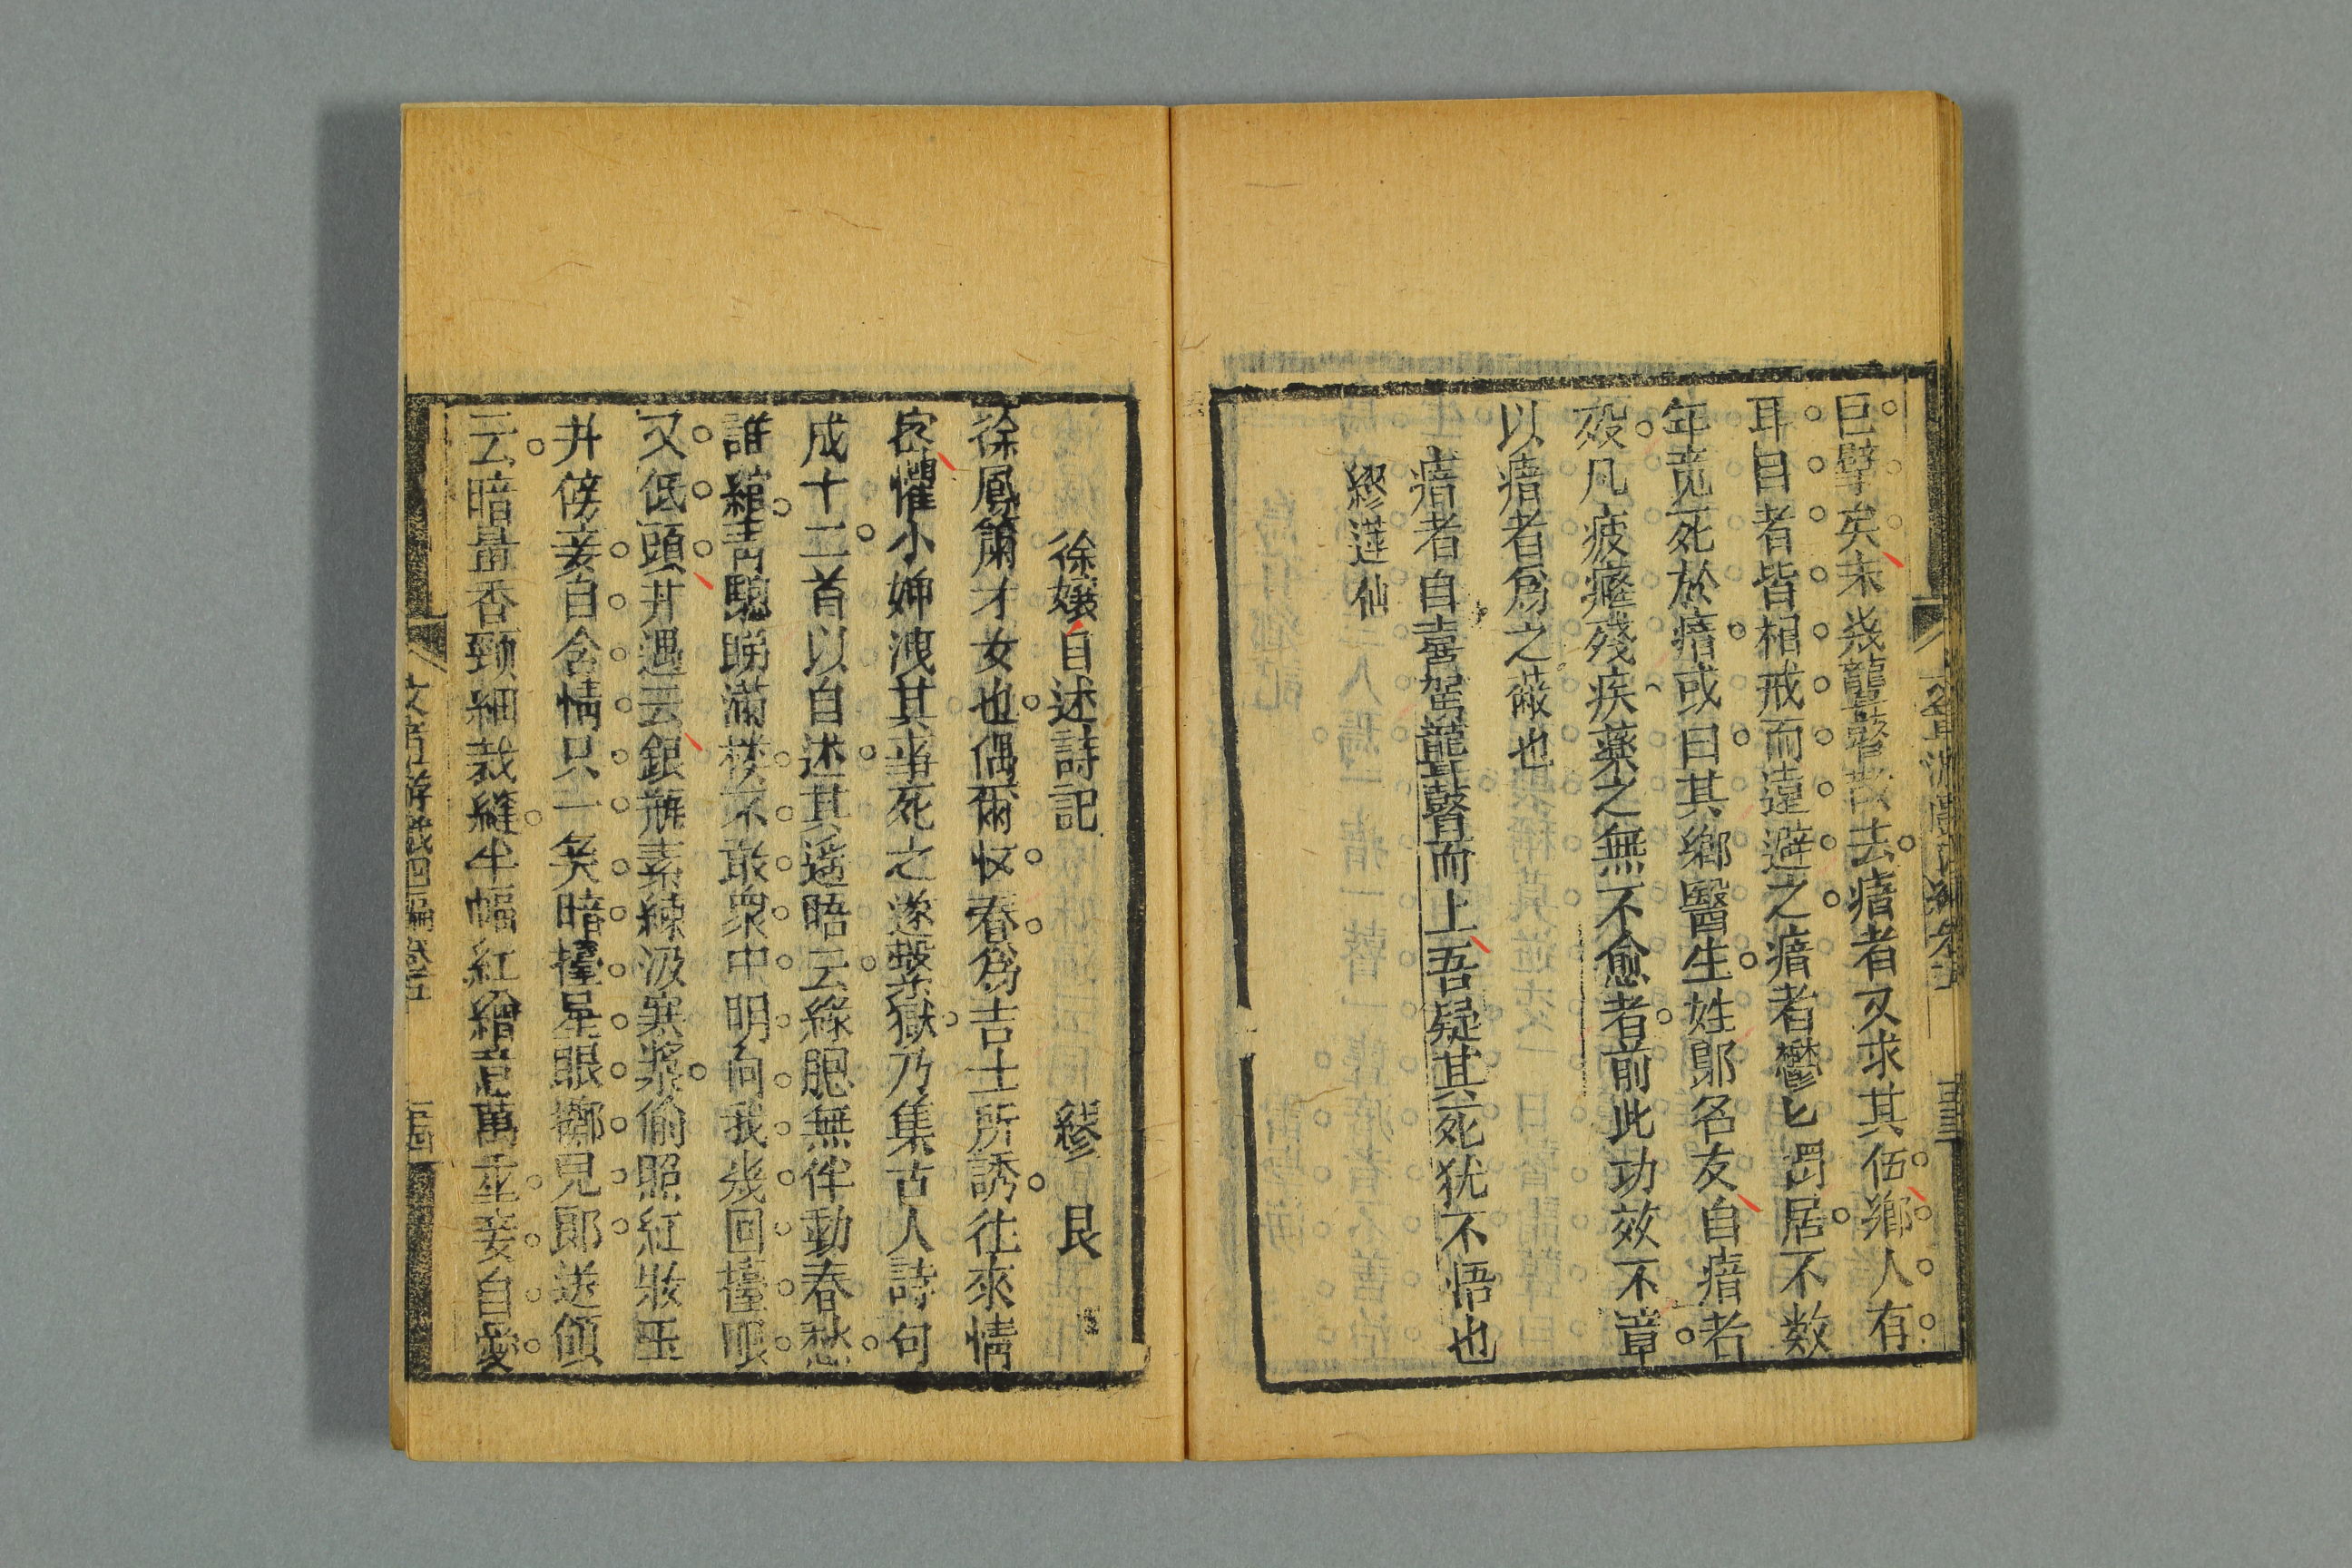 巨擘矣未幾聾瞽散去瘖者又求其伍鄉人有
耳目者皆相戒而遠避之瘖者鬱匕獨居不数
年竟死於瘖或曰其鄉醫生姓鄎名友自瘖者
歿凡疲癃殘疾藥之無不愈者前此功效不章
以瘖者爲之蔽也
瘖者自喜駕聾瞽而上吾疑其死犹不悟也
繆蓮仙
徐孃自述詩記
繆艮
徐鳳簫才女也偶爾怀春爲吉士所誘往來情
密懼小婢洩其事死之遂繫獄乃集古人詩句
成十二首以自述其遥晤云綠胞無伴動春愁
誰綰青驄睇滿楼不敢衆中明向我幾回擡眼
又低頭井遇云銀瓶素練汲寒漿偷照紅妝玉
井傍妾自含情只一矣暗擡星眼擲兒郎送傾
云暗量香頸細裁縫半幅紅繒意萬重妾自愛
文章游戲四編卷五